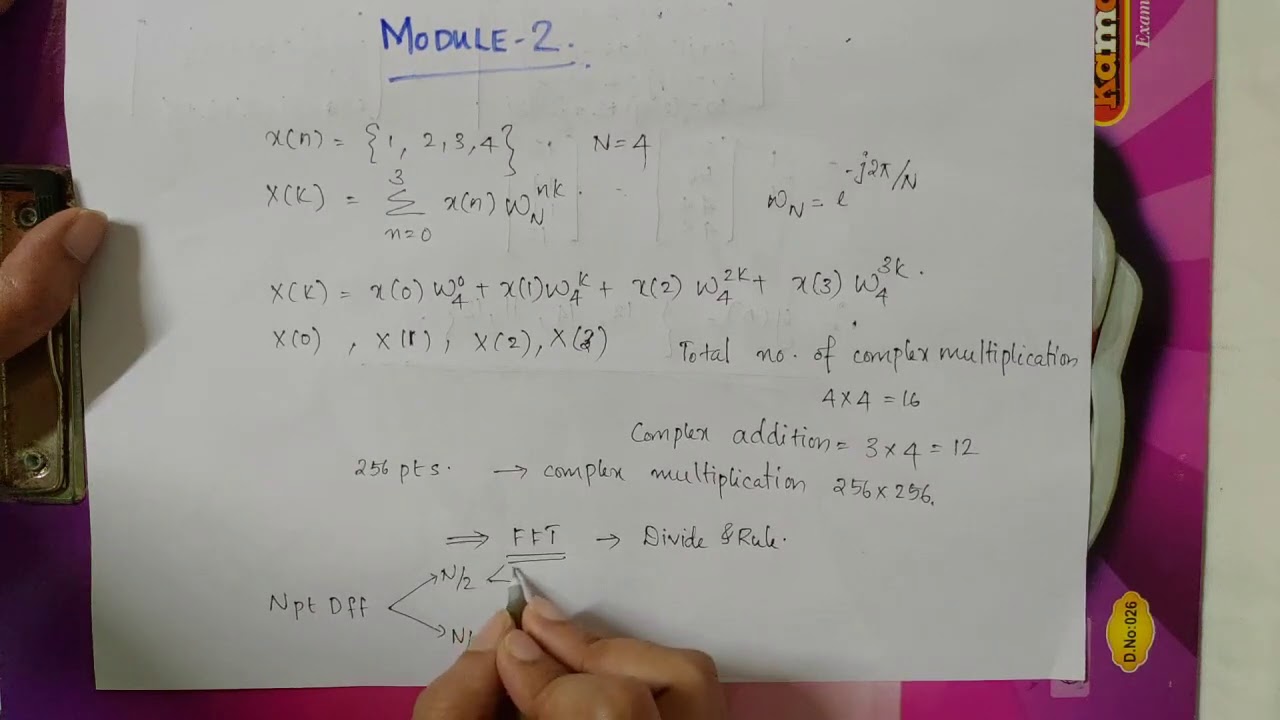 MODULE-2.
x(n) = {1, 2, 3, 4} . N=4
X(K) = 3 Σ n=0 x(n) W_N^nk . W_N = e^-j2π/N
X(K) = x(0) W_4^0 + x(1) W_4^k + x(2) W_4^2k + x(3) W_4^3k .
X(0) , X(1) , X(2), X(3)
Total no. of complex multiplication
4×4 = 16
Complex addition = 3×4 = 12
256 pts. → complex multiplication 256×256.
⇒ FFT → Divide & Rule.
N/2 <
N pt Dff
N/
Kam
Exam
D.No:026